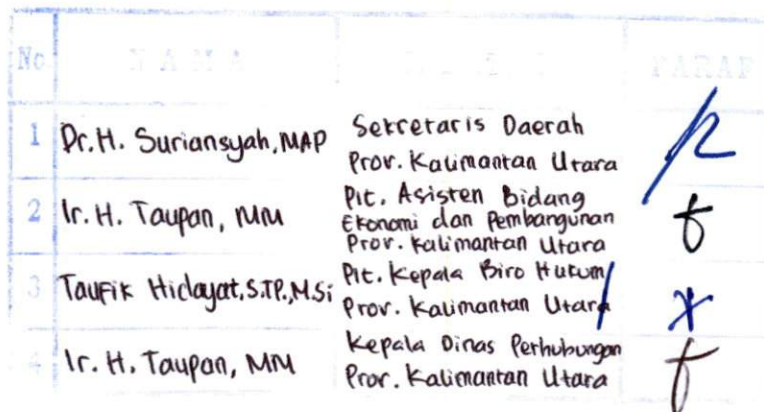 No NAMA PARAF
1 Dr. H. Suriansyah, MAP Sekretaris Daerah
Prov. Kalimantan Utara
2 Ir. H. Taupan, MM Plt. Asisten Bidang
Ekonomi dan Pembangunan
Prov. Kalimantan Utara
3 Taufik Hidayat, S.TP., M.Si Plt. Kepala Biro Hukum
Prov. Kalimantan Utara
4 Ir. H. Taupan, MM Kepala Dinas Perhubungan
Prov. Kalimantan Utara